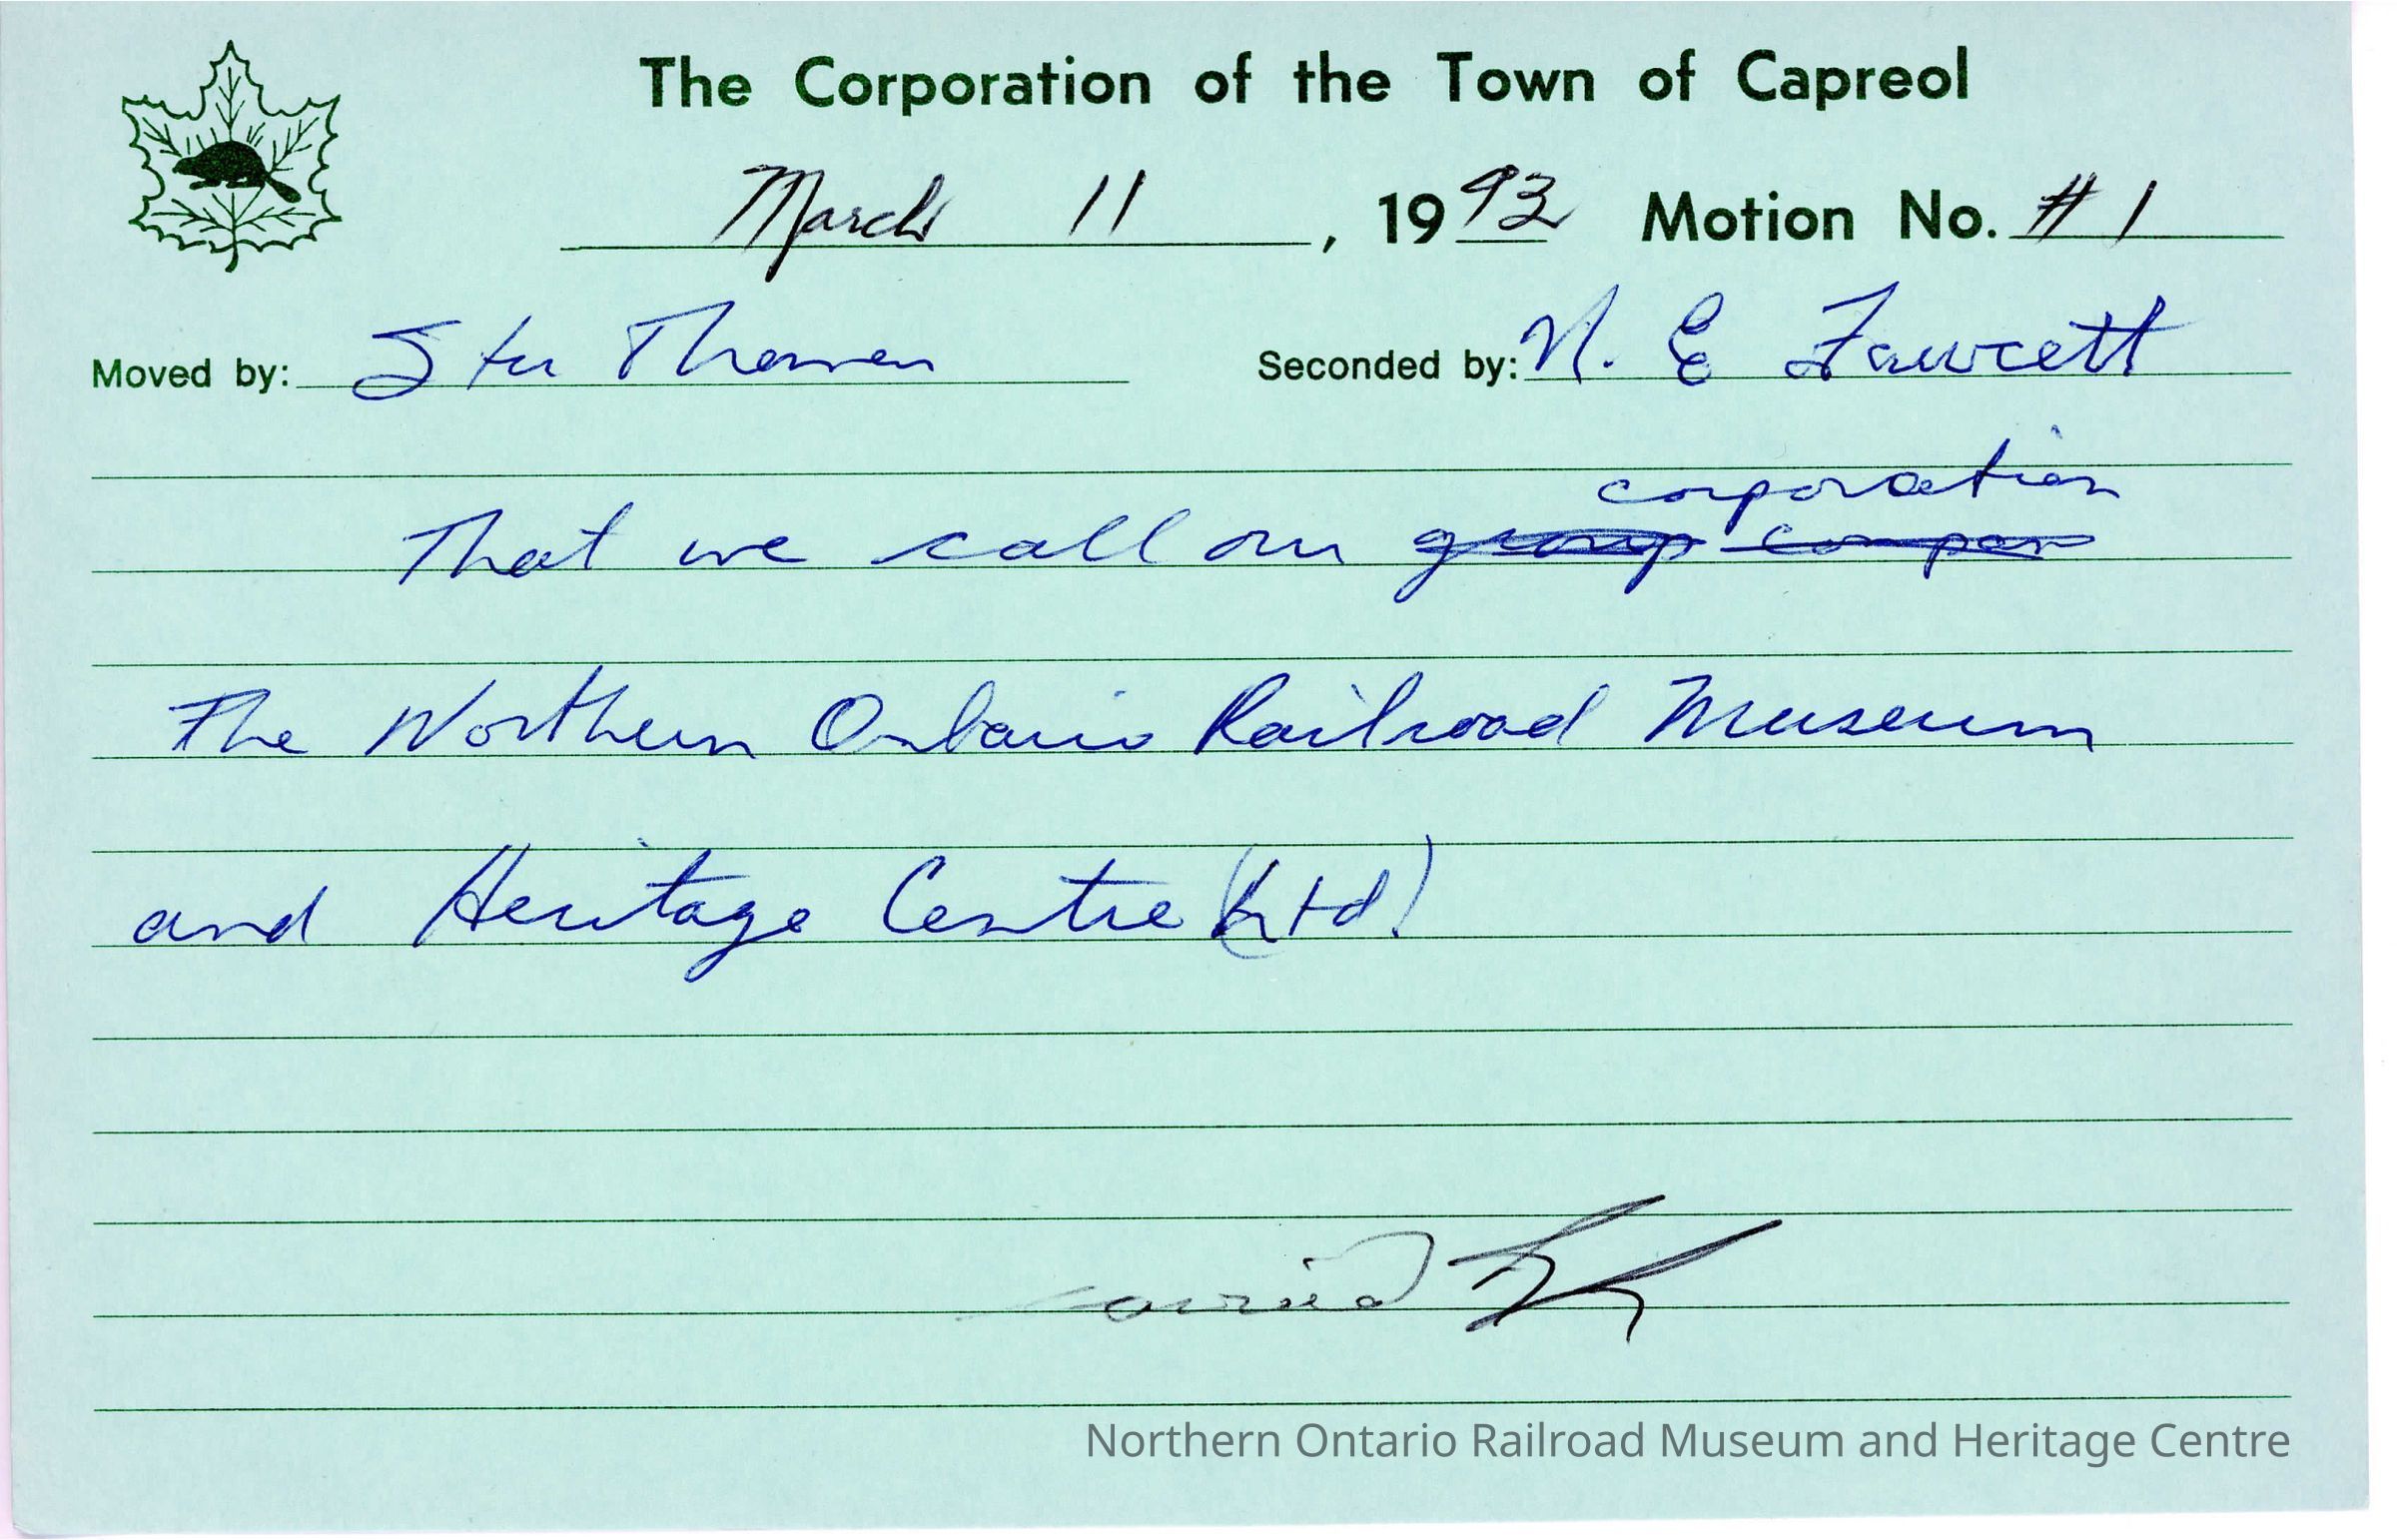 The Corporation of the Town of Capreol
March 11, 1993 Motion No. #1
Moved by: Stu Thomas Seconded by: N. E Fawcett
corporation
That we call our group compan
The Northern Ontario Railroad Museum
and Heritage Centre (Ltd)
carried
Northern Ontario Railroad Museum and Heritage Centre